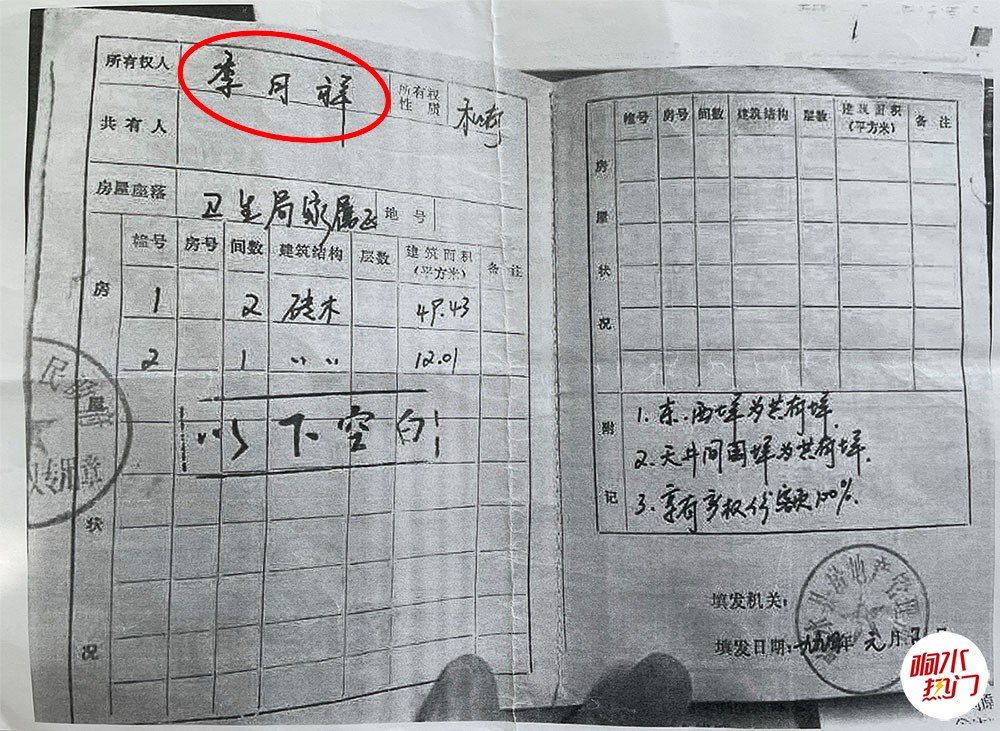 所有权人 李月祥 所有权性质 私有
共有人
房屋座落 卫生局家属区 地号
幢号 房号 间数 建筑结构 层数 建筑面积(平方米) 备注
房
1 2 砖木 49.43
2 1 〃 〃 12.01
以下空白
状
况
专用章
幢号 房号 间数 建筑结构 层数 建筑面积(平方米) 备注
房
屋
状
况
附
记
1.东.西墙为共有墙.
2.天井间围墙为共有墙.
3.享有产权份额100%.
填发机关:
房地产管理
填发日期: 年元月 日
响水
热门